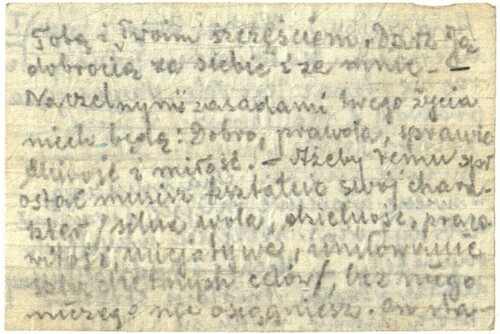 Tobą i Twoim szczęściem. Darz Ją
dobrocią za siebie i za mnie –
Naczelnymi zasadami twego życia
niech będą: Dobro, prawda, sprawie
dliwość i miłość. – Ażeby temu spr
ostać musisz kształcić swój chara-
kter / silna wola, dzielność, praco
witość, inicjatywę, umiłowanie
szlachetnych celów /, bez niego
niczego nie osiągniesz.